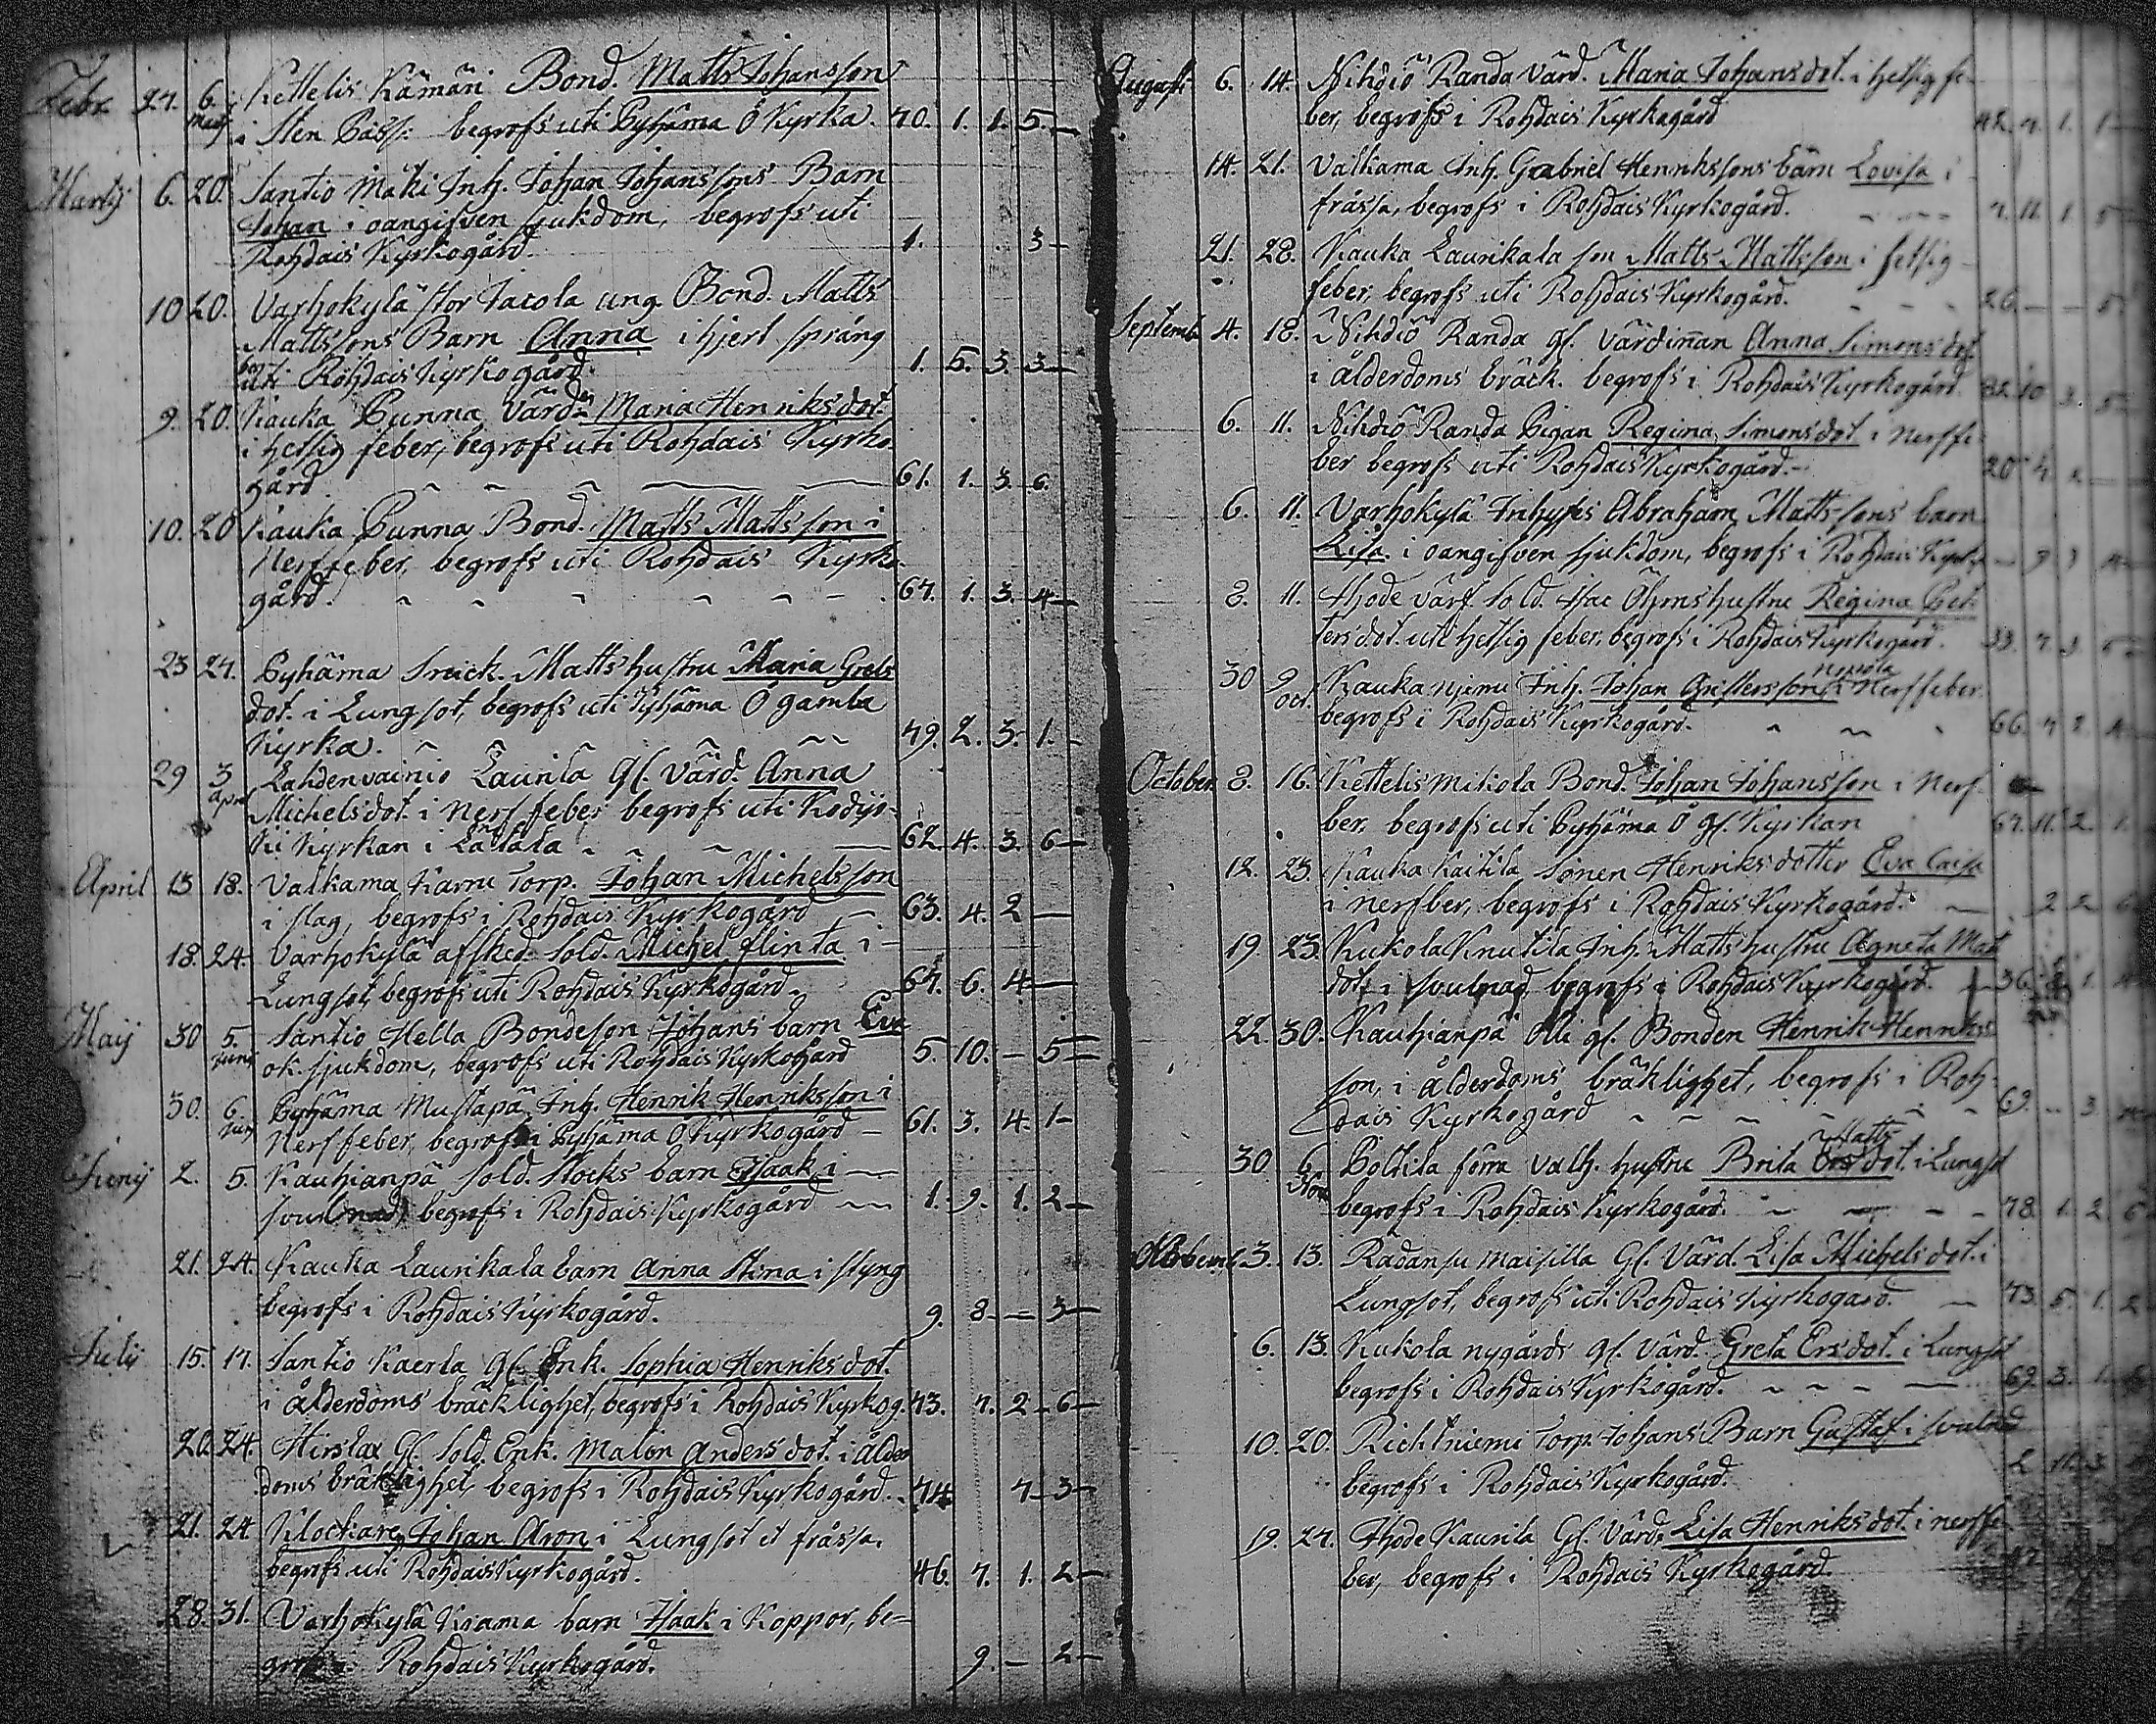 Febr 24. 6. Kettelis Kämäri Bond. Matts Johansson
i Sten Passj: begrofs uti Pyhäma Ö Kyrka. 70. 1. 1. 5.
Martij 6. 20. Santio Mäki Inh. Johan Johanssons Barn
Johan i oangifven sjukdom, begrofs uti
Rohdais Kyrkogård. 1. 3
10 20. Varhokylä stor Jacola ung Bond. Matts
Mattssons Barn Anna i hjert språng
uti Rohdais Kyrkogård. 1. 5. 3. 3
9. 20. Kauka Punna Värd. Maria Henriksdot.
i hetsig feber, begrofs uti Rohdais Kyrko-
gård 61. 1. 3. 6.
10. 20 Kauka Punna Bond. Matts Mattsson i
Nerffeber, begrofs uti Rohdais Kyrko-
gård. 67. 1. 3. 4
23 27. Pyhäma Matts hustru Maria Grels
dot. i Lungsot, begrofs uti Pyhäma Ö gamla
Kyrka. 49. 2. 3. 1.
29 3 April Lahdenvainio Laurila gl. Värd. Anna
Michelsdot. i Nerffeber begrofs uti
Kyrkan i Lätala 62. 4. 3. 6
April 15 18. Valkama Karru Torp. Johan Michelsson
i slag, begrofs i Rohdais Kyrkogård 63. 4. 2
18. 24. Varhokylä afsked. Sold. Michel flinta i
Lungsot, begrofs uti Rohdais Kyrkogård. 67. 6. 4
Maij 30 5. Junij Santio Hella Bondeson Johans barn Eva
ok. sjukdom, begrofs uti Rohdais Kyrkogård 5. 10. - 5
30. 6. Pyhäma Mustapä Inh. Henrik Henriksson i
Nerffeber, begrofs i Pyhäma Ö Kyrkogård 61. 3. 4. 1
Junij 2. 5. Kauhianpä Sold. Stocks barn Isaak i
svulnad, begrofs i Rohdais Kyrkogård 1. 9. 1. 2
21. 24. Kauka Laurikala barn Anna Stina i styng
begrofs i Rohdais Kyrkogård. 9. 8 - 3
Julij 15. 17. Santio Kaerla gl. Enk. Sophia Henriksdot.
i ålderdoms bräcklighet, begrofs i Rohdais Kyrkog. 73. 7. 2 6
20. 24. Hirslax Gl. Sold. Enk. Malin Andersdot. i ålder
doms bräklighet, begrofs i Rohdais Kyrkogård. 74 7 3
21. 24 Klockare Johan Aron i Lungsot et fråssa.
begrofs uti Rohdais Kyrkogård. 46. 7. 1. 2
28. 31. Varhokylä Krama barn Isaak i Koppor, be-
grofs i Rohdais Kyrkogård. 9. - 2
August 6. 14. Nihdiö Randa Värd. Maria Johansdot. i hetsig fe-
ber, begrofs i Rohdais Kyrkogård
14. 21. Valkama Inh. Gabriel Henrikssons barn Lovisa i
fråssa, begrofs i Rohdais Kyrkogård. 7. 11. 1. 5
21. 28. Kauka Laurikala son Matts Mattsson i hetsig
feber, begrofs uti Rohdais Kyrkogård. 26. - - 5.
Septemb. 4. 18. Nihdiö Randa gl. Värdinnan Anna Simonsdot.
i ålderdoms bräck. begrofs i Rohdais Kyrkogård
6. 11. Nihdiö Randa Pigan Regina Simonsdot i nerffe-
ber begrofs uti Rohdais Kyrkogård.
6. 11. Varhokylä Inhyses Abraham Mattsons barn
Lisa i oangifven sjukdom, begrofs i Rohdais Kyrk
8. 11. Ihode värf. Sold. Isac Öhms hustru Regina Pet-
tersdot. uti hetsig feber, begrofs i Rohdais Kyrkogård. 33. 7. 3. 5
30 9 oct. Kauka njemi Inh. Johan Gristersson i Nerffeber
begrofs i Rohdais Kyrkogård. 66. 7 2.
October 8. 16. Kettelis Mikola Bond. Johan Johansson i Nerf
ber, begrofs uti Pyhäma Ö gl. Kyrkan 67. 11. 2. 1.
12. 23. Kauka Kaitila Sonen Henriks dotter Eva Caisa
i nerfber, begrofs i Rohdais Kyrkogård. 2 2 6
19. 23. Kukola Knutila Inh. Matts hustru Agneta Mats
dot. i svulnad begrofs i Rohdais Kyrkogård. 36.
22. 30. Kauhianpä Olli gl. Bonden Henrik Henriks
son, i ålderdoms bräklighet, begrofs i Roh-
dais Kyrkogård 69. - 3
30 6 Nov Poltila förra valh. hustru Brita Mattsdot. i Lungsot
begrofs i Rohdais Kyrkogård. 78. 1. 2. 6
3. 13. Radansu Maisilla Gl. Värd. Lisa Michelsdot. i
Lungsot, begrofs uti Rohdais Kyrkogård. 73. 5. 1. 2
6. 13. Kukola nygårds gl. Värd. Greta Ersdot. i Lungsot
begrofs i Rohdais Kyrkogård. 69. 3. 1. 6
10. 20. Richtniemi Torp. Johans Barn Gustaf i svulnad
begrofs i Rohdais Kyrkogård.
19. 27. Ihode Kaurila Gl. Värd. Lisa Henriksdot. i nerffe-
ber, begrofs i Rohdais Kyrkogård.